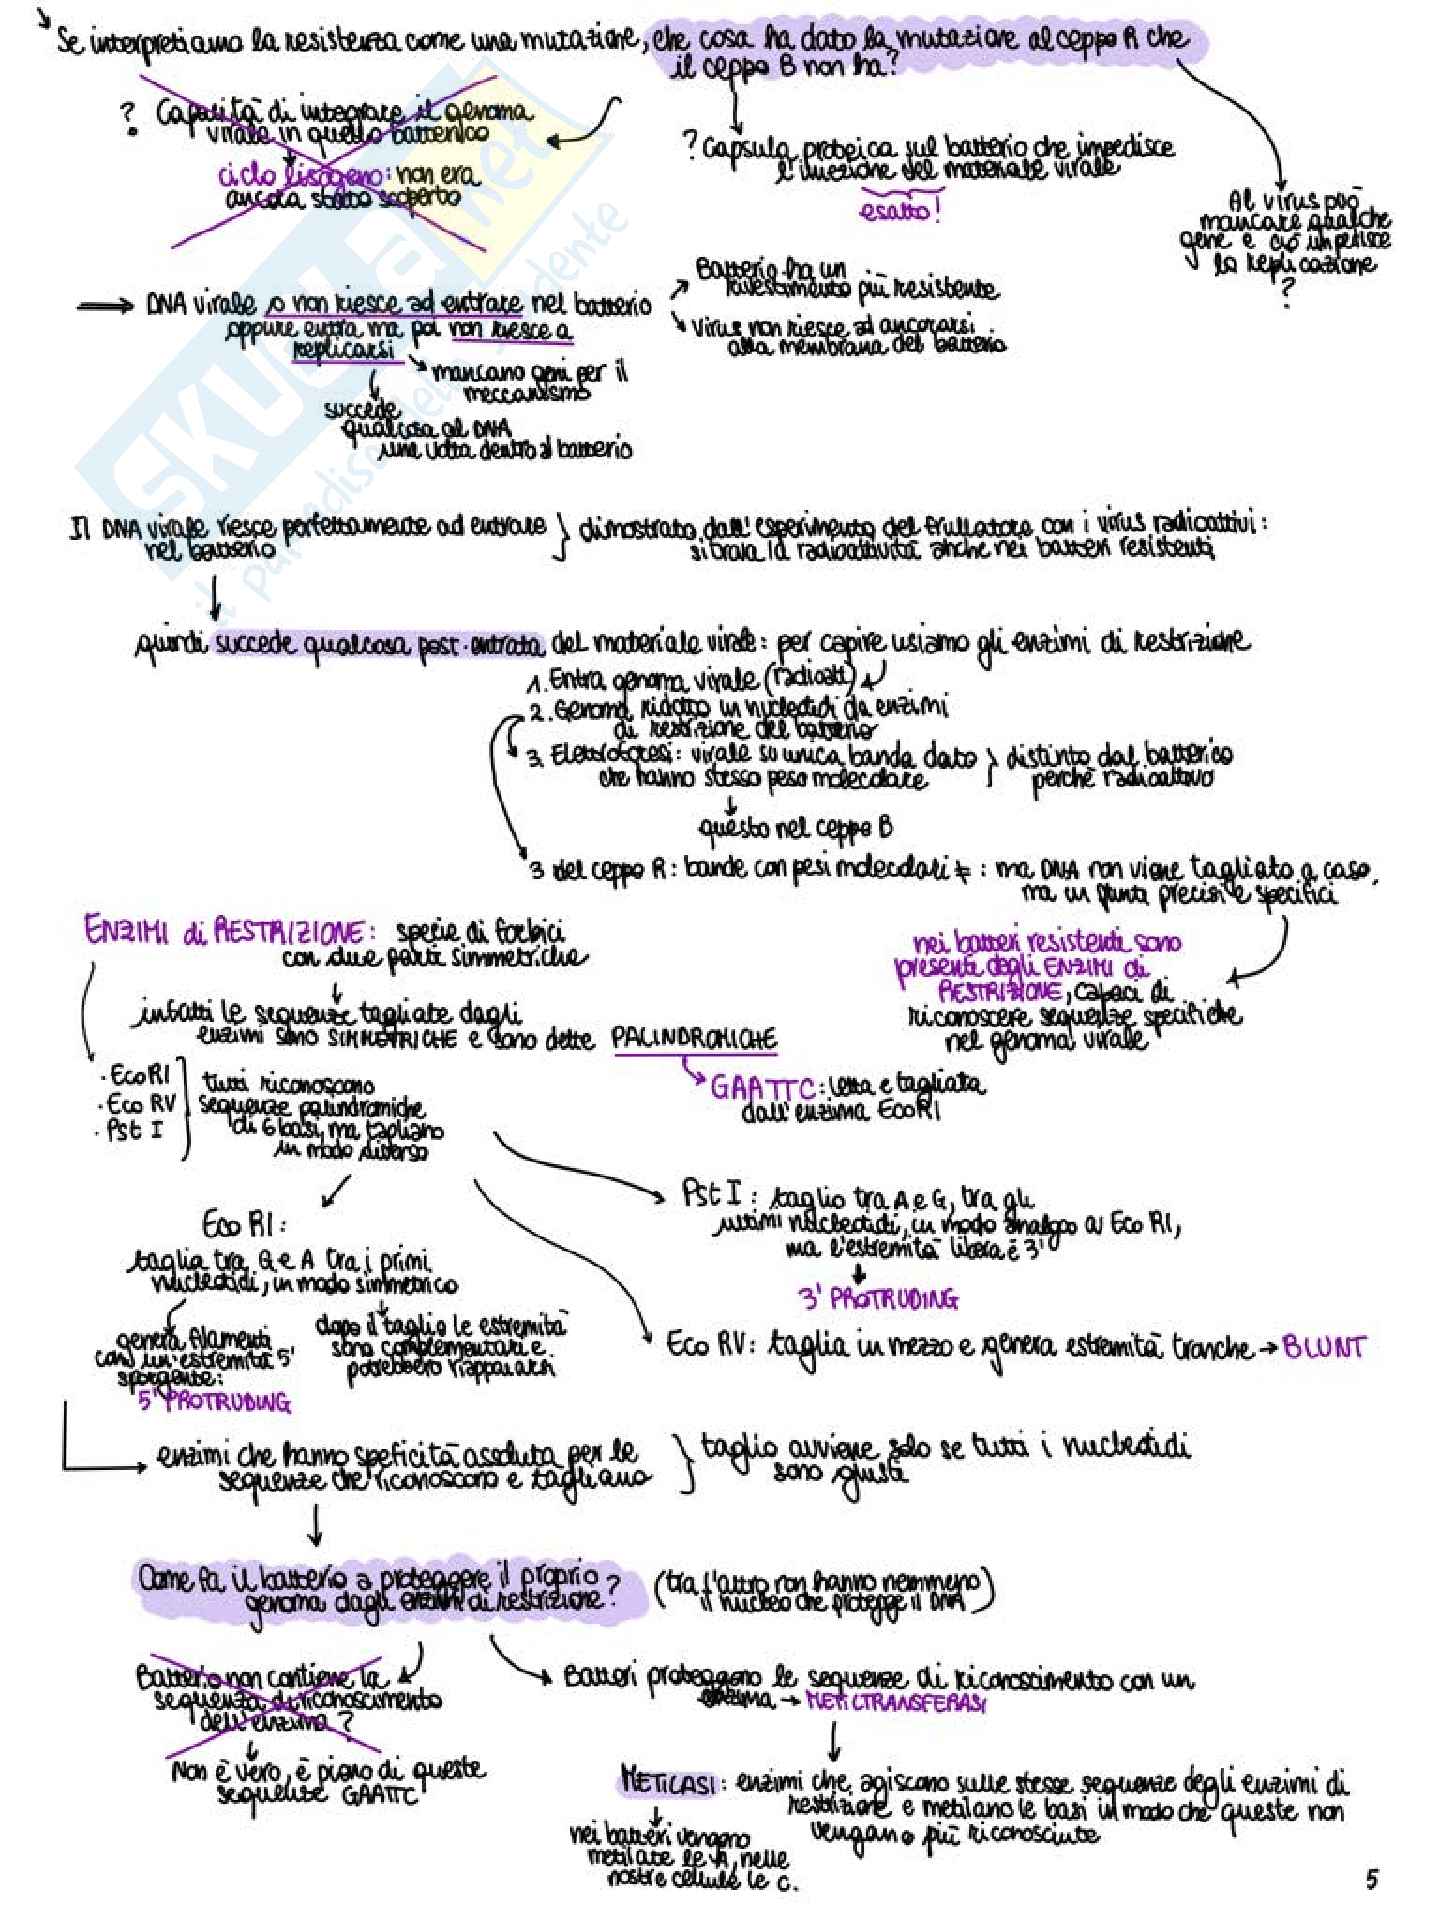 Se interpretiamo la resistenza come una mutazione, che cosa ha dato la mutazione al ceppo R che
il ceppo B non ha?
? Capacità di integrare il genoma
virale in quello batterico
ciclo lisogeno: non era
ancora stato scoperto
? Capsula proteica sul batterio che impedisce
l'iniezione del materiale virale
esatto!
Al virus può
mancare qualche
gene e ciò impedisce
la replicazione
?
→ DNA virale o non riesce ad entrare nel batterio
oppure entra ma poi non riesce a
replicarsi
Batterio ha un
rivestimento più resistente
Virus non riesce ad ancorarsi
alla membrana del batterio
mancano geni per il
meccanismo
succede
qualcosa al DNA
una volta dentro al batterio
SKUOLA.net
il paradiso dello studente
Il DNA virale riesce perfettamente ad entrare
nel batterio
} dimostrato dall'esperimento del frullatore con i virus radioattivi:
si trova la radioattività anche nei batteri resistenti
quindi succede qualcosa post-entrata del materiale virale: per capire usiamo gli enzimi di restrizione
1. Entra genoma virale (radioatt)
2. Genoma ridotto in nucleotidi da enzimi
di restrizione del batterio
3. Elettroforesi: virale su unica banda dato
che hanno stesso peso molecolare
} distinto dal batterico
perché radioattivo
questo nel ceppo B
3 nel ceppo R: bande con pesi molecolari ≠: ma DNA non viene tagliato a caso,
ma in punti precisi e specifici
nei batteri resistenti sono
presenti degli ENZIMI di
RESTRIZIONE, capaci di
riconoscere sequenze specifiche
nel genoma virale
ENZIMI di RESTRIZIONE: specie di forbici
con due parti simmetriche
infatti le sequenze tagliate dagli
enzimi sono SIMMETRICHE e sono dette PALINDROMICHE
GAATTC: letta e tagliata
dall'enzima EcoRI
· EcoRI
· Eco RV
· Pst I
tutti riconoscono
sequenze palindromiche
di 6 basi, ma tagliano
in modo diverso
Eco RI:
taglia tra G e A tra i primi
nucleotidi, in modo simmetrico
genera filamenti
con un'estremità 5'
sporgente:
5' PROTRUDING
dopo il taglio le estremità
sono complementari e
potrebbero riappaiarsi
Pst I: taglio tra A e G, tra gli
ultimi nucleotidi, in modo analogo a Eco RI,
ma l'estremità libera è 3'
3' PROTRUDING
Eco RV: taglia in mezzo e genera estremità tronche → BLUNT
enzimi che hanno speficità assoluta per le
sequenze che riconoscono e tagliano
} taglio avviene solo se tutti i nucleotidi
sono giusti
Come fa il batterio a proteggere il proprio
genoma dagli enzimi di restrizione?
(tra l'altro non hanno nemmeno
il nucleo che protegge il DNA)
Batterio non contiene la
sequenza di riconoscimento
dell'enzima?
Non è vero, è pieno di queste
sequenze GAATTC
Batteri proteggono le sequenze di riconoscimento con un
enzima → METILTRANSFERASI
METILASI: enzimi che agiscono sulle stesse sequenze degli enzimi di
restrizione e metilano le basi in modo che queste non
vengano più riconosciute
nei batteri vengono
metilate le A, nelle
nostre cellule le C.
5